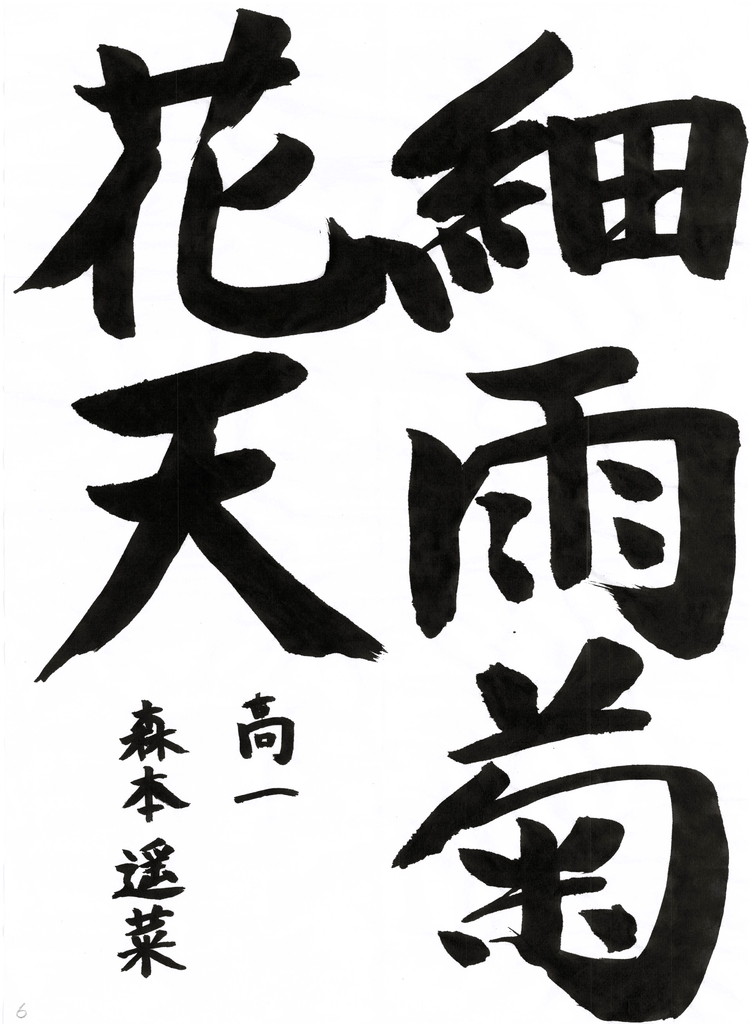 細雨菊
花天
高一
森本遥菜
6